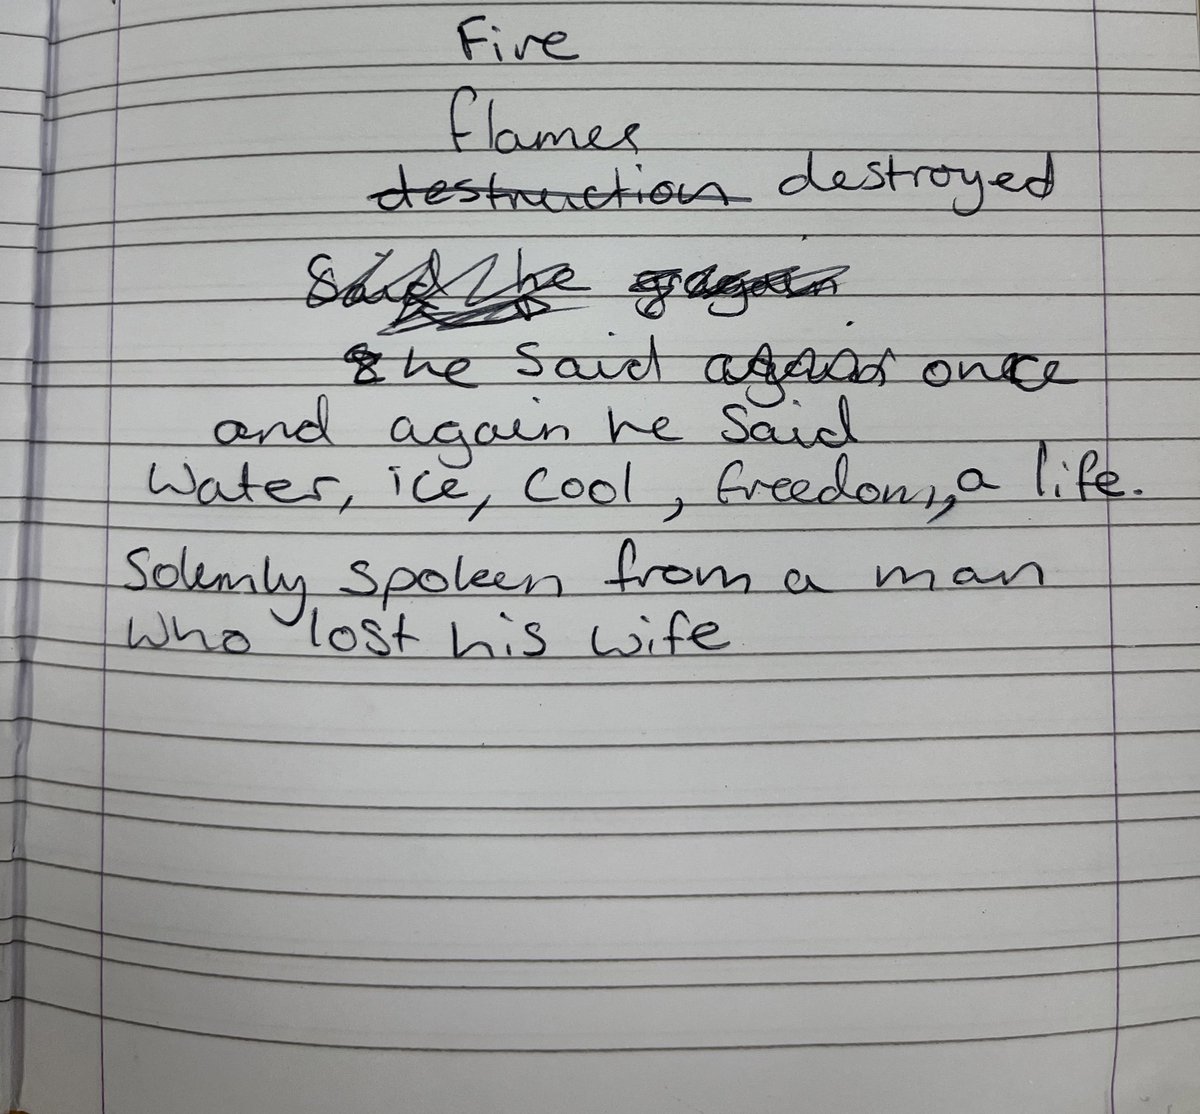 Fire
flames
destruction destroyed
Said he again
he said again once
and again he said
Water, ice, cool, freedom, a life.
Solemly spoken from a man
who lost his wife